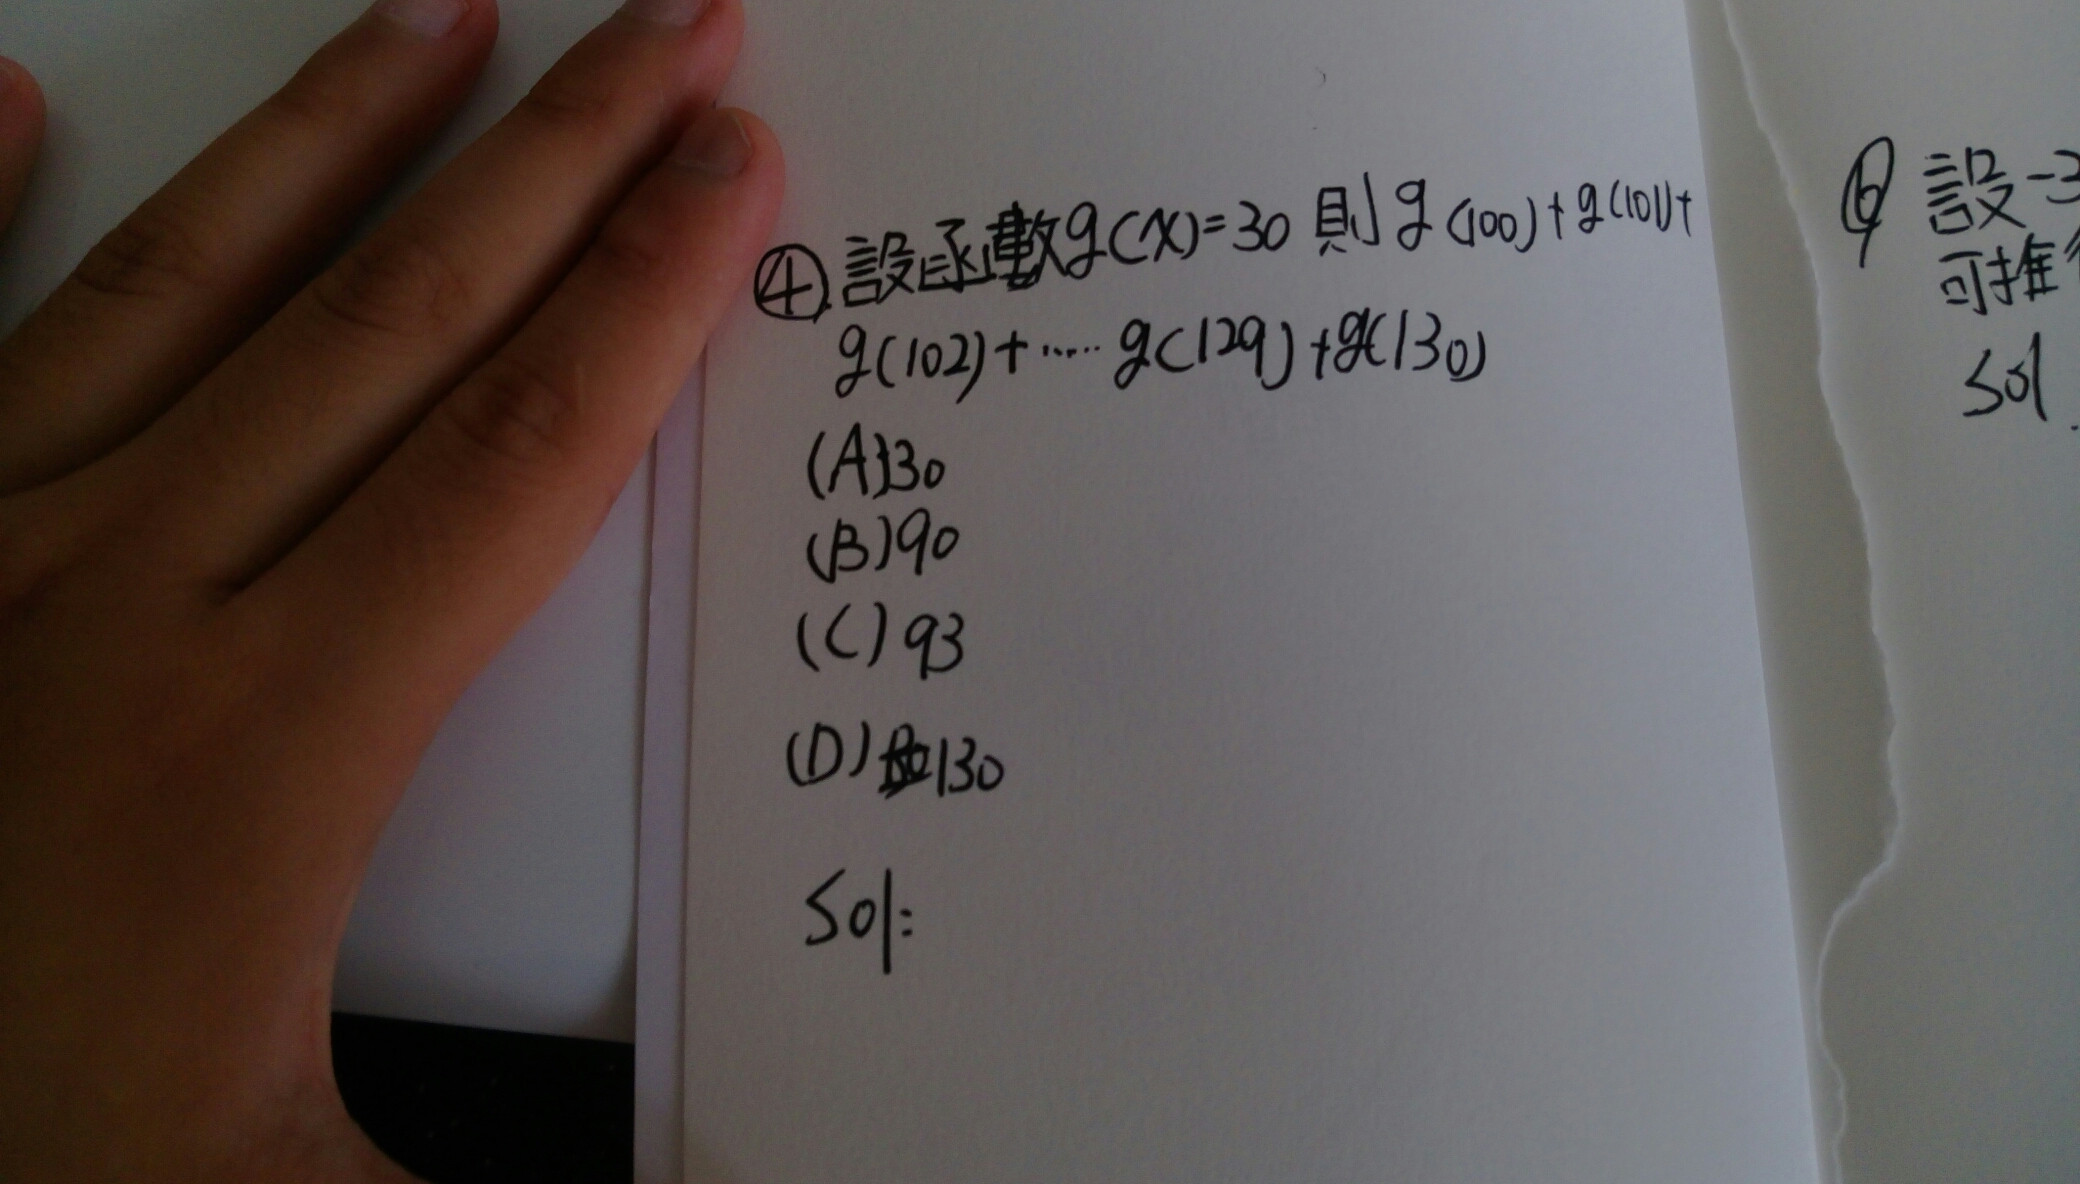 ④ 設函數g(x)=30 則g(100)+g(101)+
g(102)+……g(129)+g(130)
(A)30
(B)90
(C)93
(D)130
Sol:
⑥ 設-3
可推
Sol